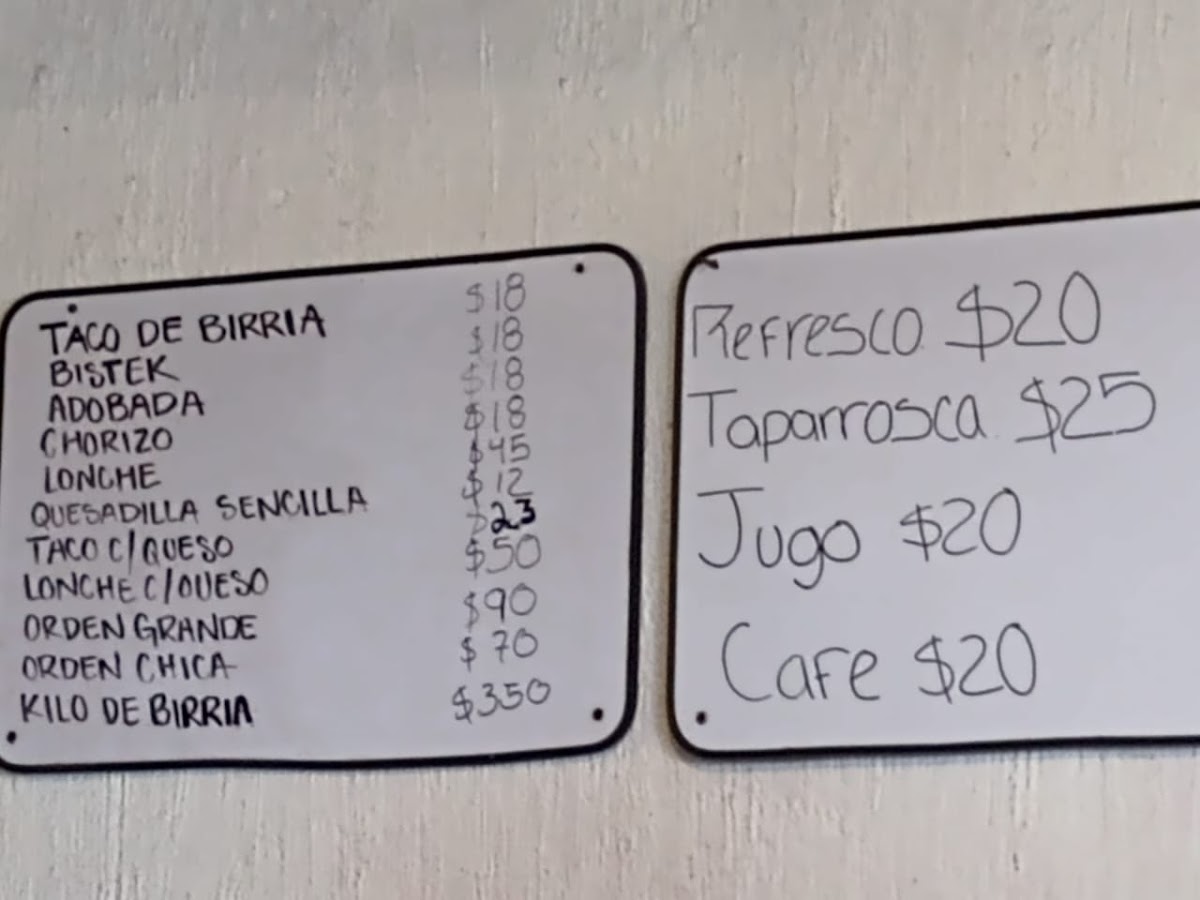 TACO DE BIRRIA $18
BISTEK $18
ADOBADA $18
CHORIZO $18
LONCHE $45
QUESADILLA SENCILLA $12
TACO C/QUESO $23
LONCHE C/QUESO $50
ORDEN GRANDE $90
ORDEN CHICA $70
KILO DE BIRRIA $350
Refresco $20
Taparrosca $25
Jugo $20
Cafe $20